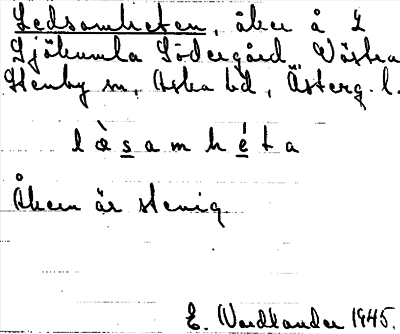 Ledsamheten, åker å L
Gjökumla Södergård Västra
Stenby sn, Aska hd, Österg. l.
l æ̀ s a m h é t a
Åkern är stenig
E. Nordlander 1945.